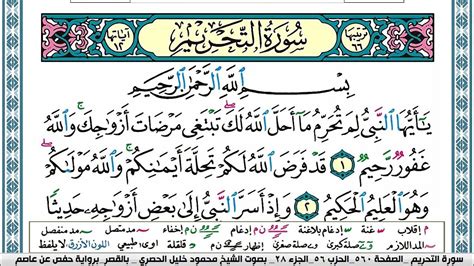 ترتيبها ٦٦ سُورَةُ التَّحْرِيمِ آياتها ١٢
بِسْمِ اللَّهِ الرَّحْمَٰنِ الرَّحِيمِ
يَٰٓأَيُّهَا ٱلنَّبِىُّ لِمَ تُحَرِّمُ مَآ أَحَلَّ ٱللَّهُ لَكَ ۖ تَبْتَغِى مَرْضَاتَ أَزْوَٰجِكَ ۚ وَٱللَّهُ
غَفُورٌ رَّحِيمٌ ١ قَدْ فَرَضَ ٱللَّهُ لَكُمْ تَحِلَّةَ أَيْمَٰنِكُمْ ۚ وَٱللَّهُ مَوْلَىٰكُمْ ۖ
وَهُوَ ٱلْعَلِيمُ ٱلْحَكِيمُ ٢ وَإِذْ أَسَرَّ ٱلنَّبِىُّ إِلَىٰ بَعْضِ أَزْوَٰجِهِۦ حَدِيثًا
م إقلاب غنة إدغام بلاغنة إدغام بغنة ن م إخفاء مد متصل مد منفصل
المد اللازم صلة كبرى صلة صغرى إظهار ن م قلقلة أوى، طبيعي اللون الأزرق لا يلفظ
سورة التحريم _ الصفحة ٥٦٠ _ الحزب ٥٦ _ الجزء ٢٨ _ بصوت الشيخ محمود خليل الحصري _ بالقصر _ برواية حفص عن عاصم